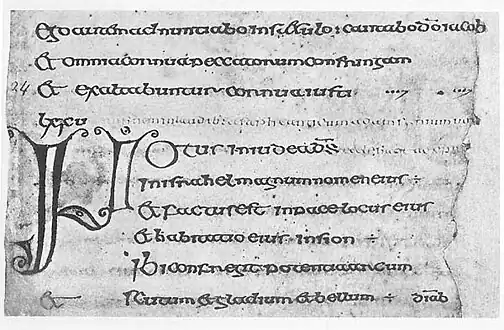 Ego autem adnuntiabo in saeculo : cantabo dō iacob
Et omnia cornua peccatorum confringam
24 Et exaltabuntur cornua iusti
lxxv
Notus in iudea dS̄
in israhel magnum nomen eius ÷
Et factus est in pace locus eius
Et habitatio eius in sion ÷
Ibi confregit potentia arcum
Et scutum et gladium et bellum ÷ diab